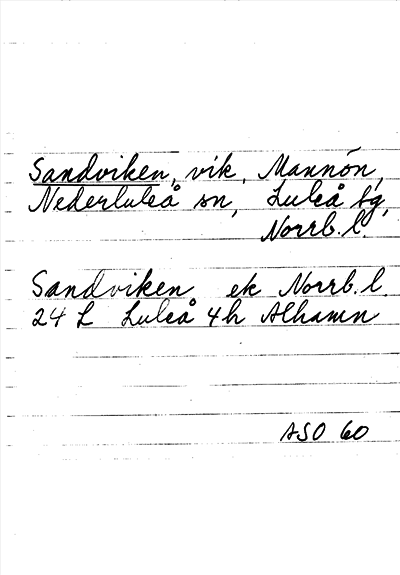 Sandviken, vik, Mannön,
Nederluleå sn, Luleå tg,
Norrb. l.
Sandviken ek Norrb. l.
24 L Luleå 4h Alhamn
ASO 60